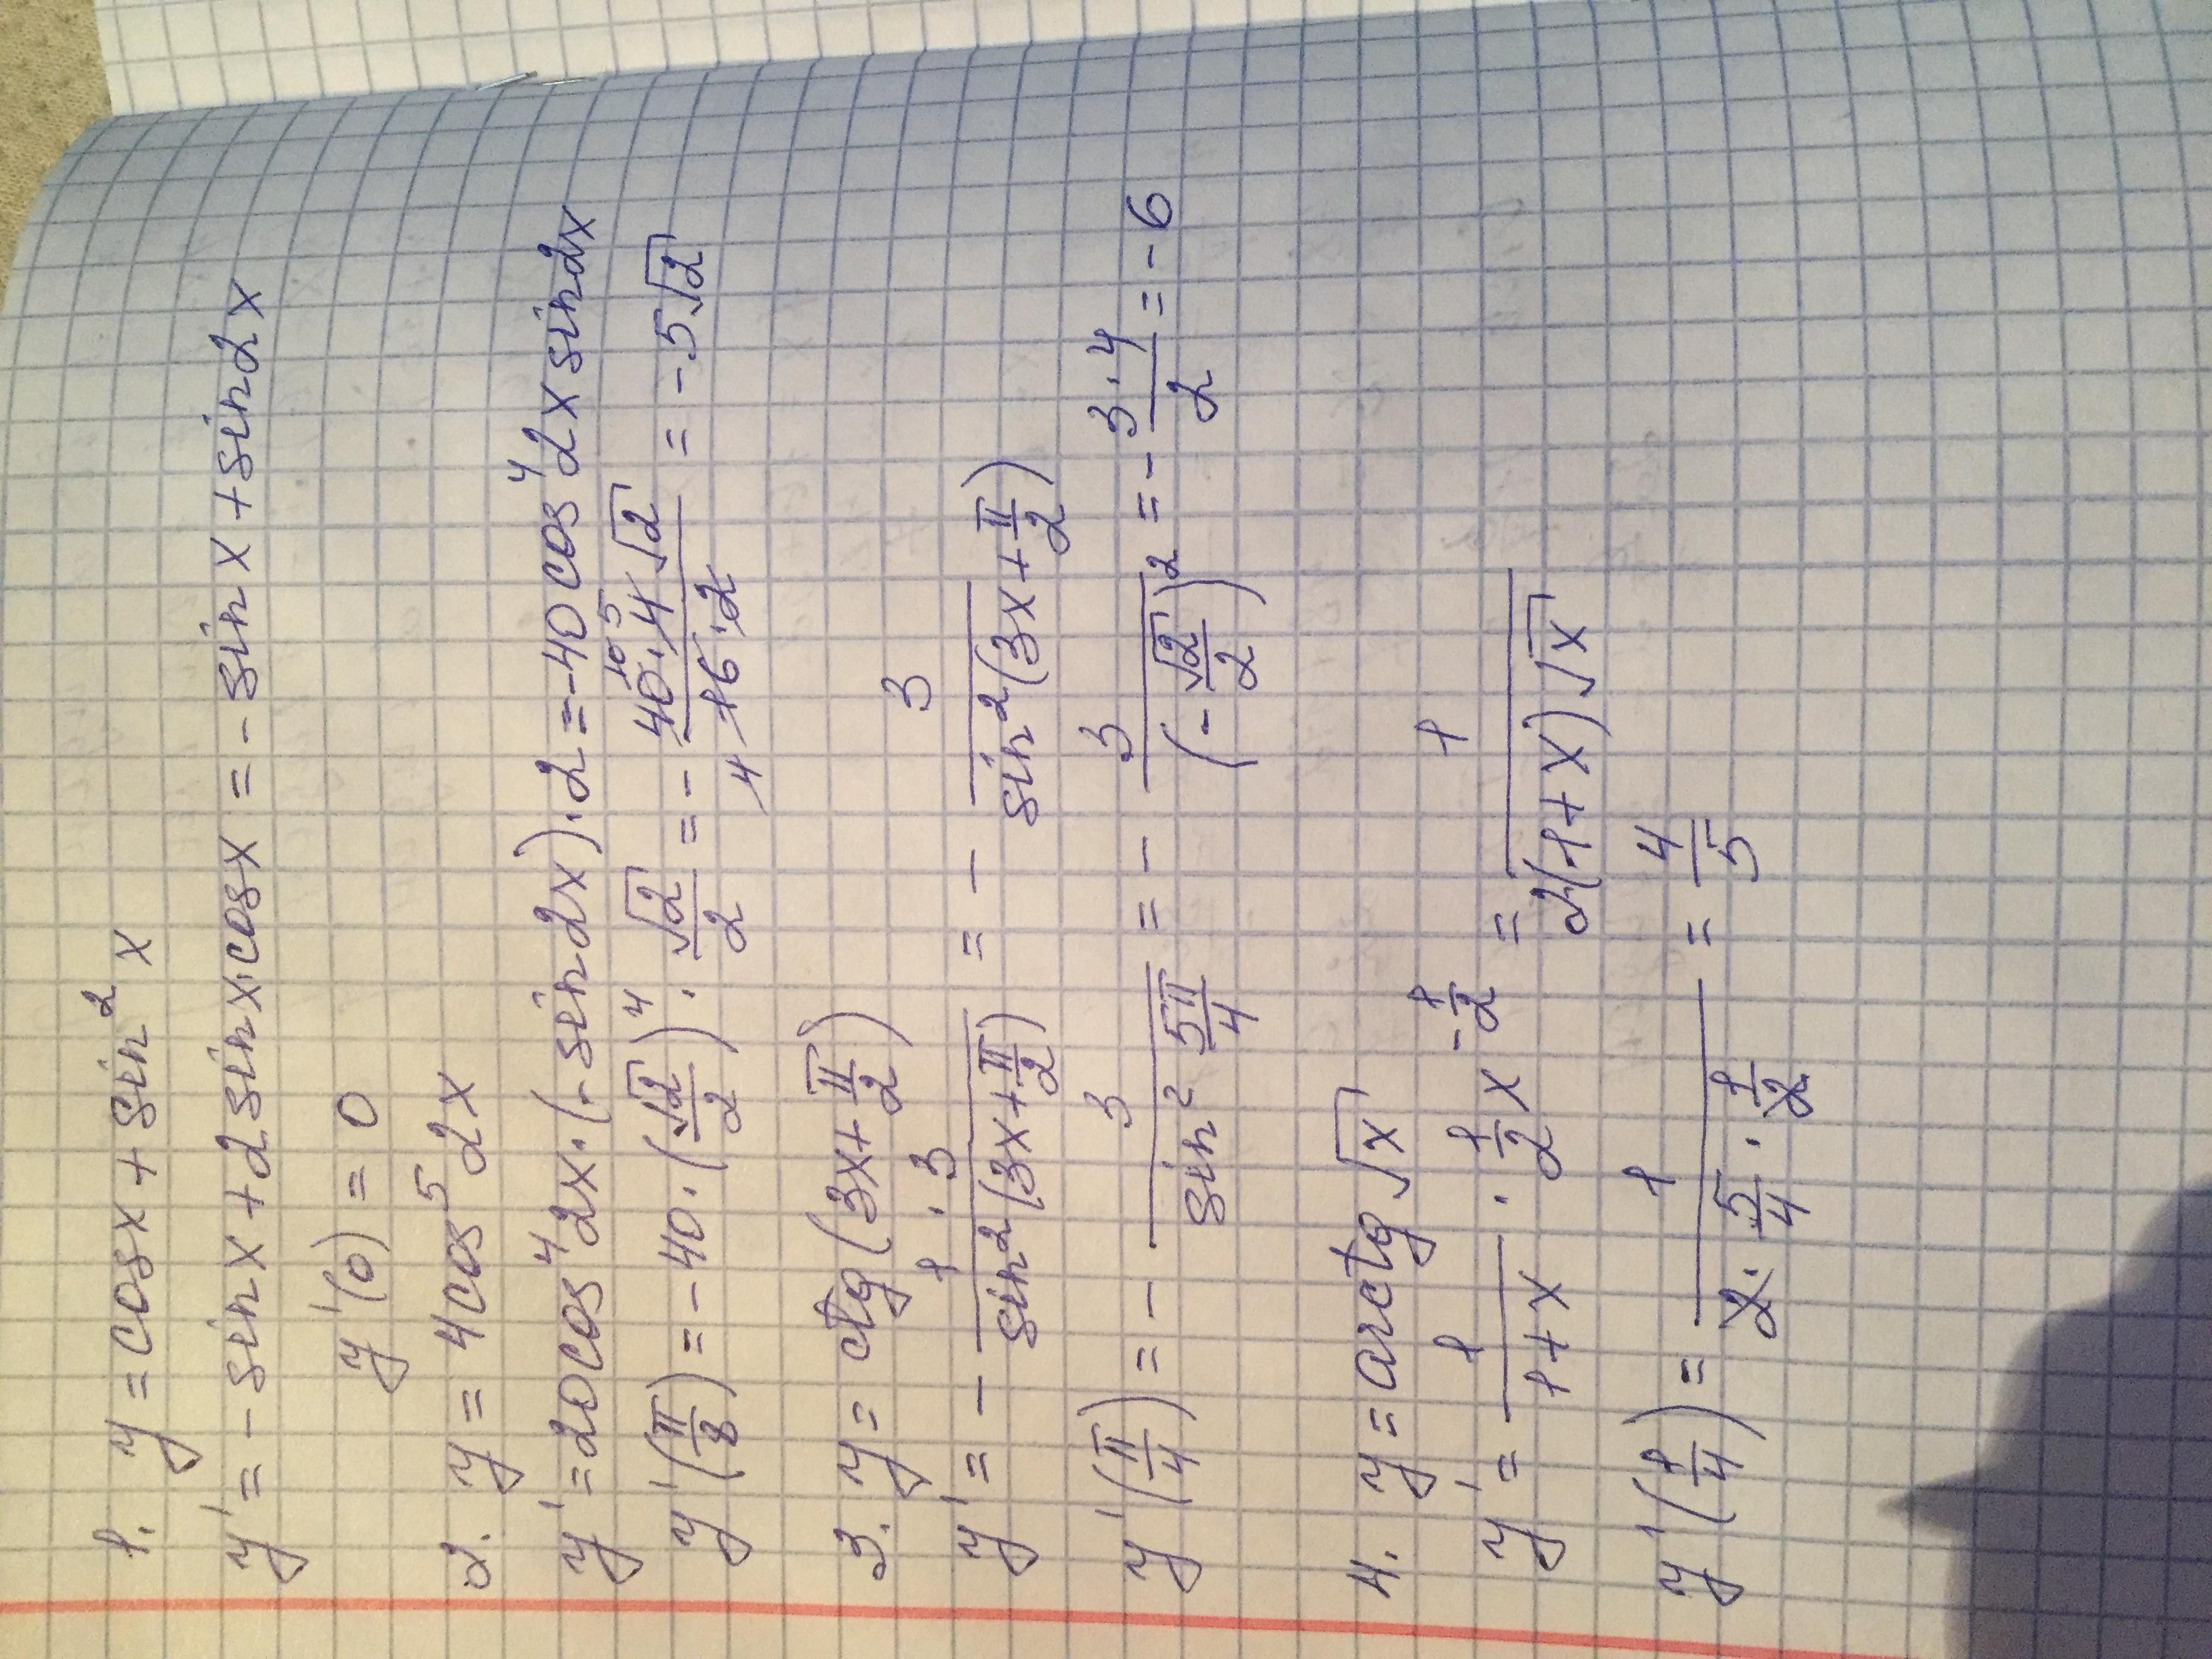 1. y = cosx + sin² x
y' = - sin x + 2 sin x·cosx = - sin x + sin 2x
y'(0) = 0
2. y = 4cos⁵ 2x
y' = 20cos⁴ 2x·(- sin 2x)·2 = -40 cos⁴ 2x sin 2x
y'(π/8) = -40·(√2/2)⁴·√2/2 = - 40·4√2/16·2 = -5√2
3. y = ctg(3x + π/2)
y' = - 1/sin²(3x + π/2) · 3 = - 3/sin²(3x + π/2)
y'(π/4) = - 3/sin² 5π/4 = - 3/(-√2/2)² = - 3·4/2 = -6
4. y = arctg √x
y' = 1/1+x · 1/2 x^-1/2 = 1/2(1+x)√x
y'(1/4) = 1/2·5/4·1/2 = 4/5